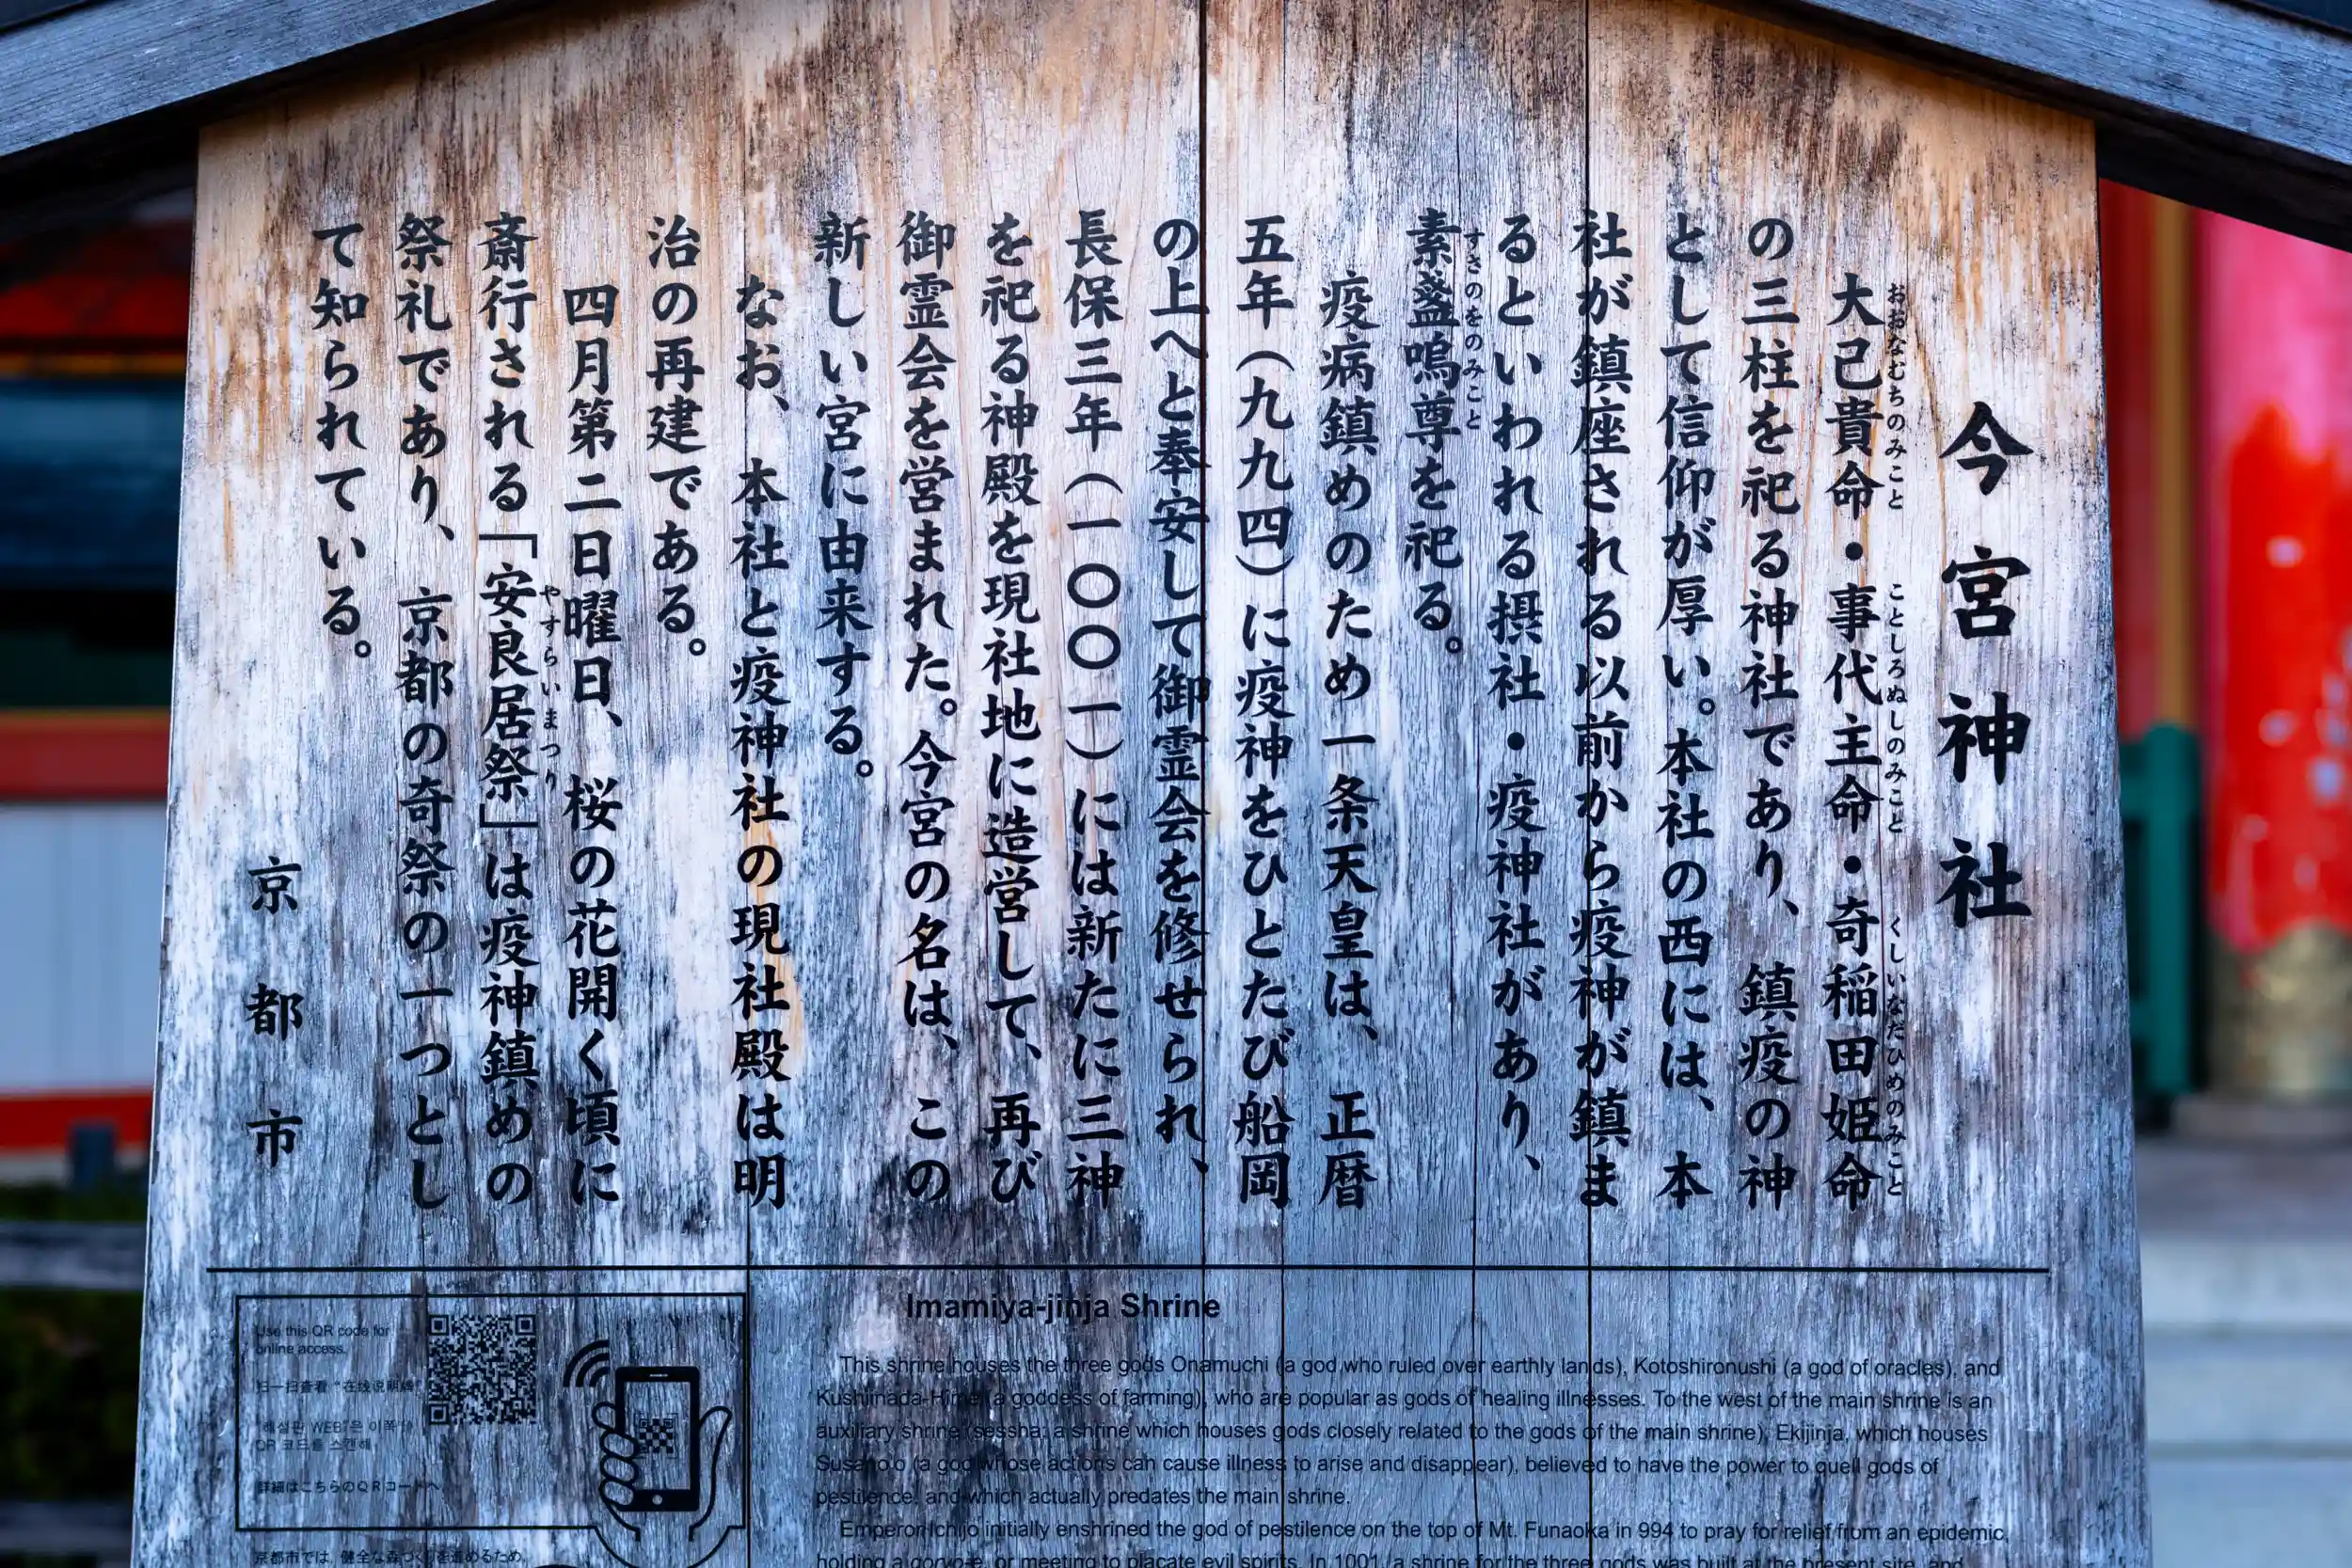 今宮神社
大己貴命・事代主命・奇稲田姫命
おおなむちのみこと ことしろぬしのみこと くしいなだひめのみこと
の三柱を祀る神社であり、鎮疫の神
として信仰が厚い。本社の西には、本
社が鎮座される以前から疫神が鎮ま
るといわれる摂社・疫神社があり、
素盞嗚尊を祀る。
すさのをのみこと
疫病鎮めのため一条天皇は、正暦
五年（九九四）に疫神をひとたび船岡
の上へと奉安して御霊会を修せられ、
長保三年（一〇〇一）には新たに三神
を祀る神殿を現社地に造営して、再び
御霊会を営まれた。今宮の名は、この
新しい宮に由来する。
なお、本社と疫神社の現社殿は明
治の再建である。
四月第二日曜日、桜の花開く頃に
斎行される「安良居祭」は疫神鎮めの
やすらいまつり
祭礼であり、京都の奇祭の一つとし
て知られている。
京都市
Use this QR code for
online access.
扫一扫查看“在线说明牌”
해설판 WEB은 이쪽의
QR 코드를 스캔해
詳細はこちらのQRコードへ
京都市では、健全な森づくりを進めるため、
Imamiya-jinja Shrine
This shrine houses the three gods Onamuchi (a god who ruled over earthly lands), Kotoshironushi (a god of oracles), and
Kushiinada-Hime (a goddess of farming), who are popular as gods of healing illnesses. To the west of the main shrine is an
auxiliary shrine (sessha; a shrine which houses gods closely related to the gods of the main shrine), Ekijinja, which houses
Susano'o (a god whose actions can cause illness to arise and disappear), believed to have the power to quell gods of
pestilence, and which actually predates the main shrine.
Emperor Ichijo initially enshrined the god of pestilence on the top of Mt. Funaoka in 994 to pray for relief from an epidemic,
holding a goryo-e, or meeting to placate evil spirits. In 1001, a shrine for the three gods was built at the present site, and